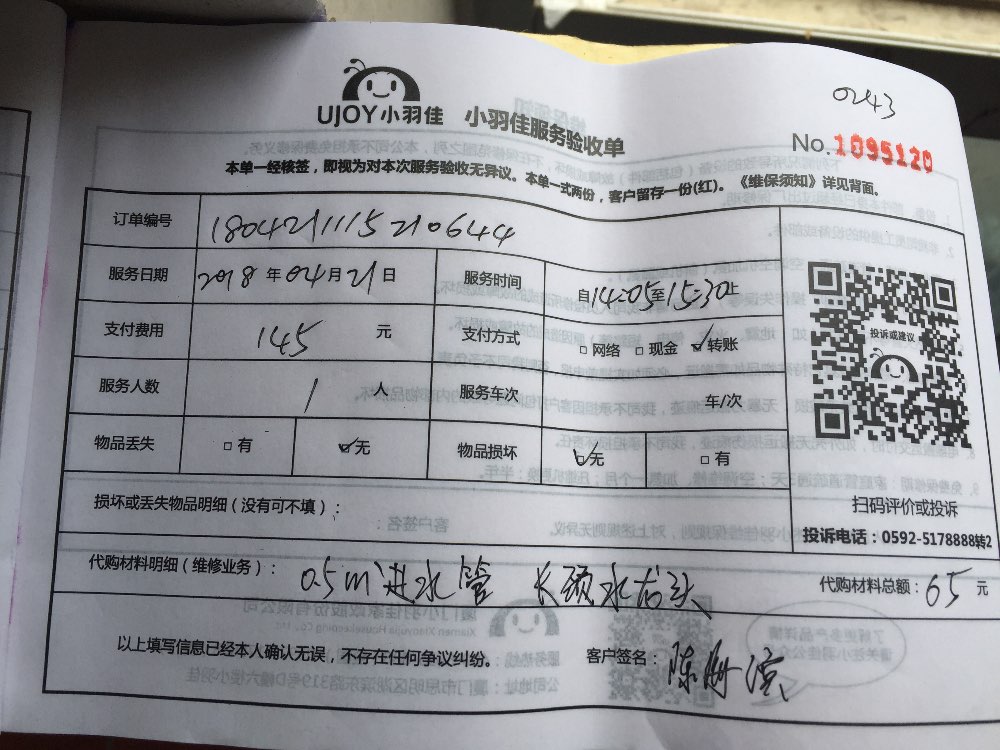 0243
UJOY小羽佳 小羽佳服务验收单
No.1095120
本单一经核签，即视为对本次服务验收无异议。本单一式两份，客户留存一份(红)。《维保须知》详见背面。
订单编号 180421115210644
服务日期 2018年04月21日 服务时间 自14:05至15:30止
支付费用 145 元 支付方式 □网络 □现金 ☑转账
服务人数 1 人 服务车次 车/次
物品丢失 □有 ☑无 物品损坏 ☑无 □有
投诉或建议
损坏或丢失物品明细（没有可不填）：
扫码评价或投诉
投诉电话：0592-5178888转2
代购材料明细（维修业务）： 0.5m进水管 长颈水龙头 代购材料总额：65元
以上填写信息已经本人确认无误，不存在任何争议纠纷。 客户签名：陈